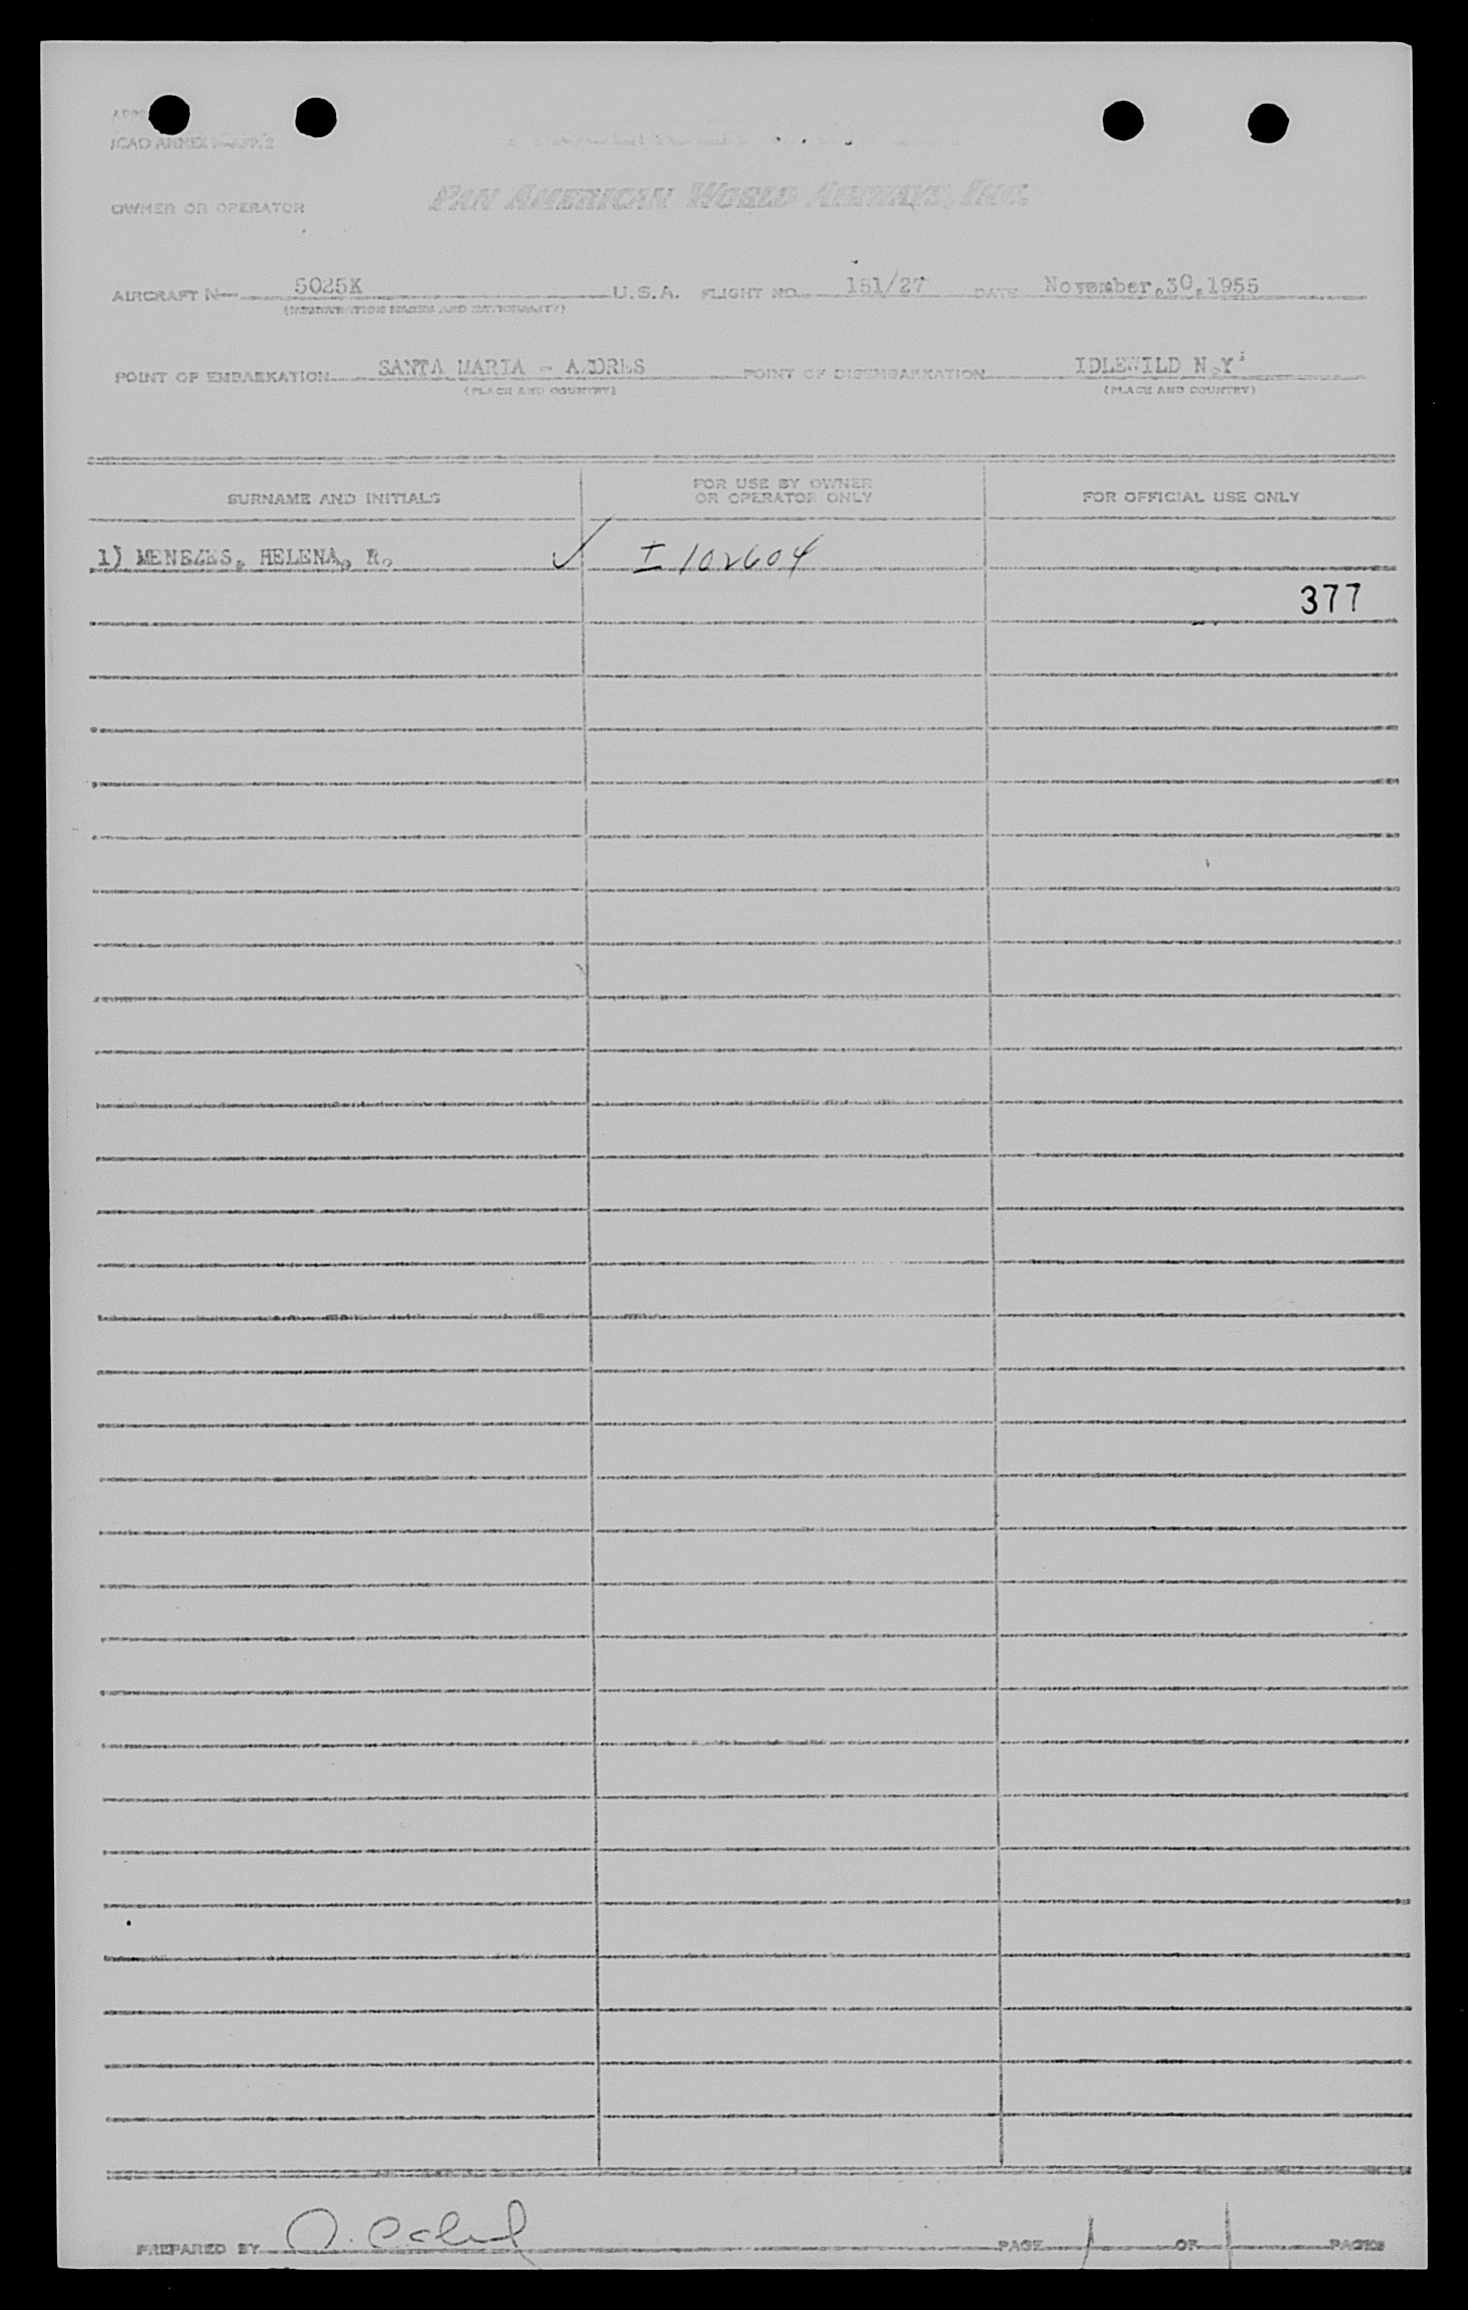 ICAO ANNEX
OWNER OR OPERATOR PAN AMERICAN WORLD AIRWAYS, INC.
AIRCRAFT N— 5025K U.S.A. FLIGHT NO. 151/27 DATE November,30,1955
(REGISTRATION MARKS AND NATIONALITY)
POINT OF EMBARKATION SANTA MARIA - AZORES POINT OF DISEMBARKATION IDLEWILD N.Y
(PLACE AND COUNTRY) (PLACE AND COUNTRY)
SURNAME AND INITIALS FOR USE BY OWNER OR OPERATOR ONLY FOR OFFICIAL USE ONLY
1) MENEZES, HELENA, R. ✓ I 102604
377
PREPARED BY PAGE 1 OF 1 PAGES